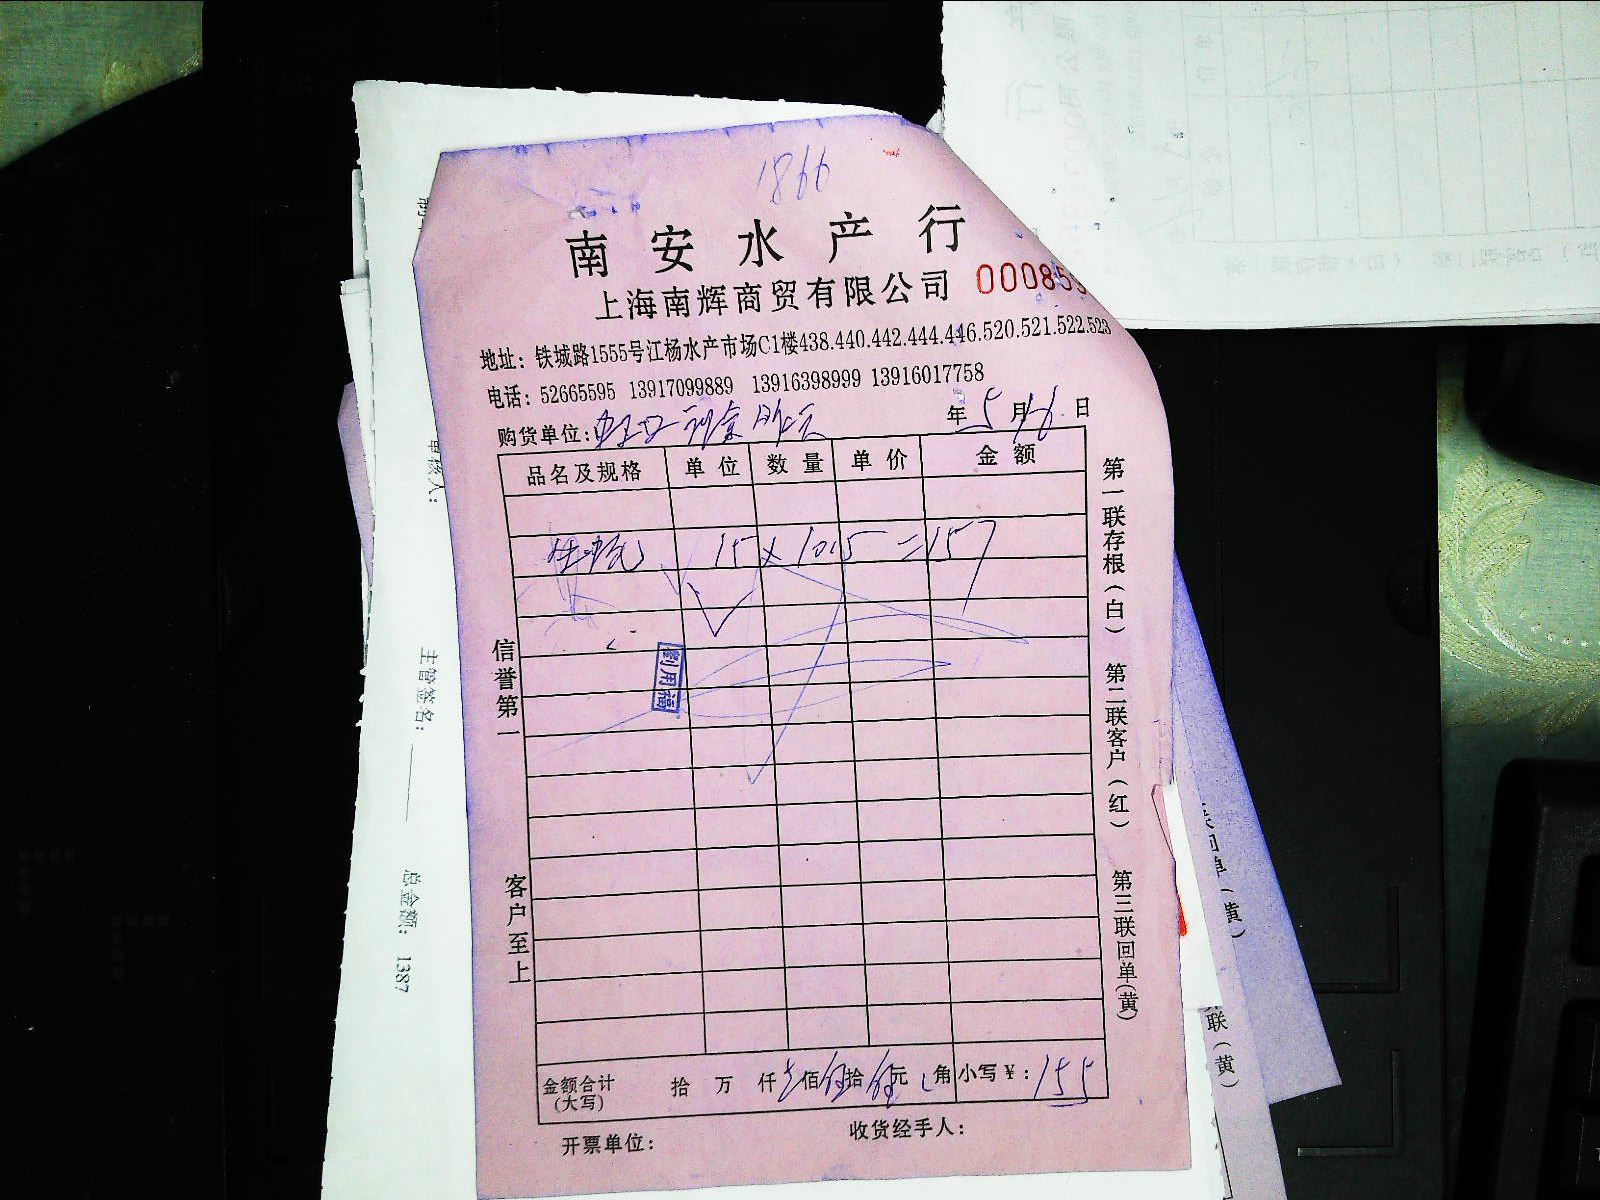 1866
南安水产行
上海南辉商贸有限公司 000855
地址：铁城路1555号江杨水产市场C1楼438.440.442.444.446.520.521.522.523
电话：52665595 13917099889 13916398999 13916017758
购货单位： 年 5 月 16 日
品名及规格 单位 数量 单价 金额
15 × 10.5 = 157
信誉第一
客户至上
第一联存根（白） 第二联客户（红） 第三联回单（黄）
金额合计（大写） 拾 万 仟 壹佰 伍拾 伍元 角 小写￥：155
开票单位： 收货经手人：
审核人：
主管签名：
总金额： 1387
联（黄）